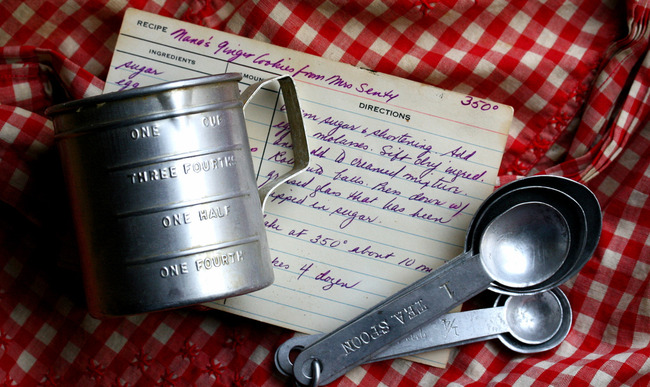 RECIPE Nana's Ginger Cookies from Mrs Senty 350°
INGREDIENTS AMOUN DIRECTIONS
sugar
egg
sugar & shortening. Add
molasses. Sift dry ingred.
to creamed mixture
into balls. Press down w/
glass that has been
in sugar.
at 350° about 10 m
4 dozen
ONE CUP
THREE FOURTHS
ONE HALF
ONE FOURTH
1 TEA SPOON